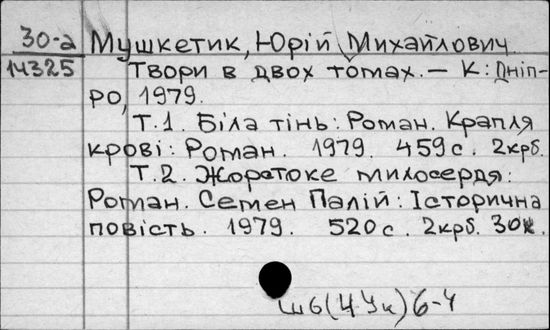 30-а Мушкетик, Юрій Михайлович
14325 Твори в двох томах. – К: Дніп-
ро, 1979.
Т.1. Біла тінь: Роман. Крапля
крові: Роман. 1979. 459с. 2крб.
Т.2. Жорстоке милосердя:
Роман. Семен Палій: Історична
повість. 1979. 520с. 2крб. 30к.
Ш6(4Ук)6-4